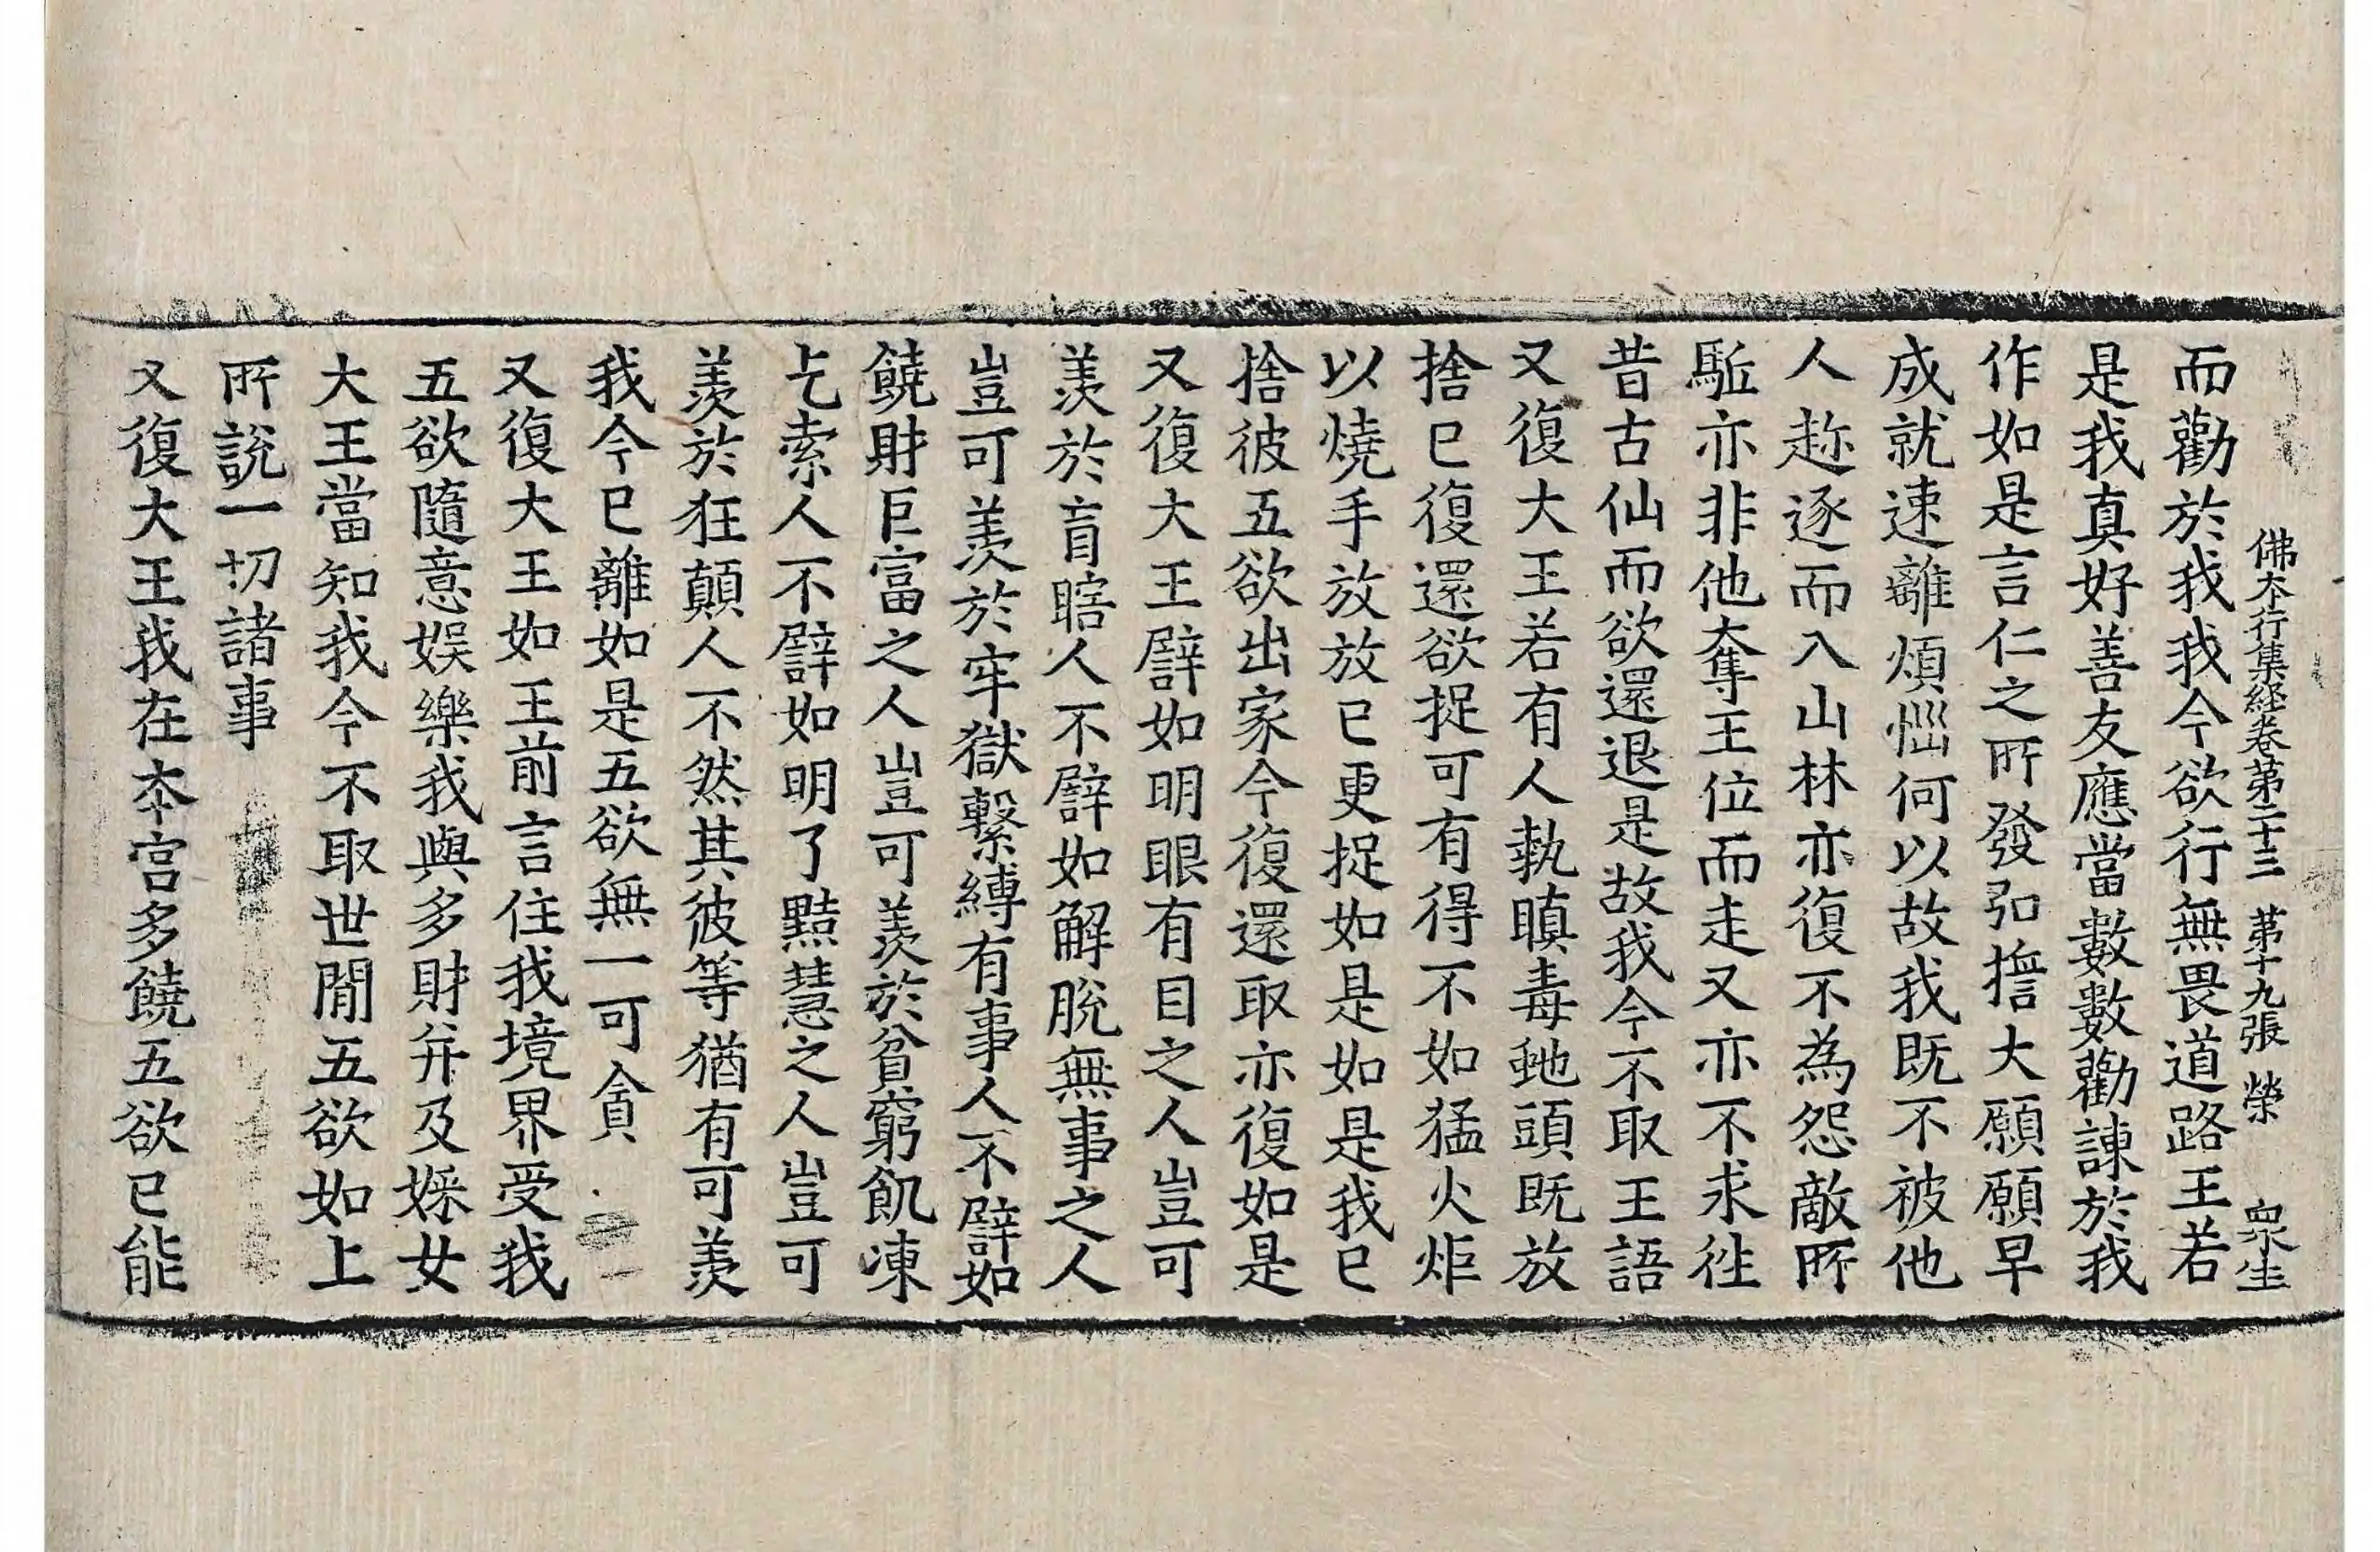 佛本行集経卷第二十三 苐十九張 榮 衆生
而勸於我我今欲行無畏道路王若
是我真好善友應當數數勸諫於我
作如是言仁之所發弘擔大願願早
成就速離煩惱何以故我既不被他
人趂逐而入山林亦復不為怨敵所
駈亦非他奪王位而走又亦不求徃
昔古仙而欲還退是故我今不取王語
又復大王若有人執瞋毒虵頭既放
捨已復還欲捉可有得不如猛火炬
以燒手放放已更捉如是如是我已
捨彼五欲出家今復還取亦復如是
又復大王譬如明眼有目之人豈可
羨於盲瞎人不譬如解脫無事之人
豈可羨於牢獄繫縛有事人不譬如
饒財巨富之人豈可羨於貧窮飢凍
乞索人不譬如明了黠慧之人豈可
羨於狂顛人不然其彼等猶有可羨
我今已離如是五欲無一可貪
又復大王如王前言住我境界受我
五欲隨意娛樂我與多財并及婇女
大王當知我今不取世間五欲如上
所說一切諸事
又復大王我在本宮多饒五欲已能